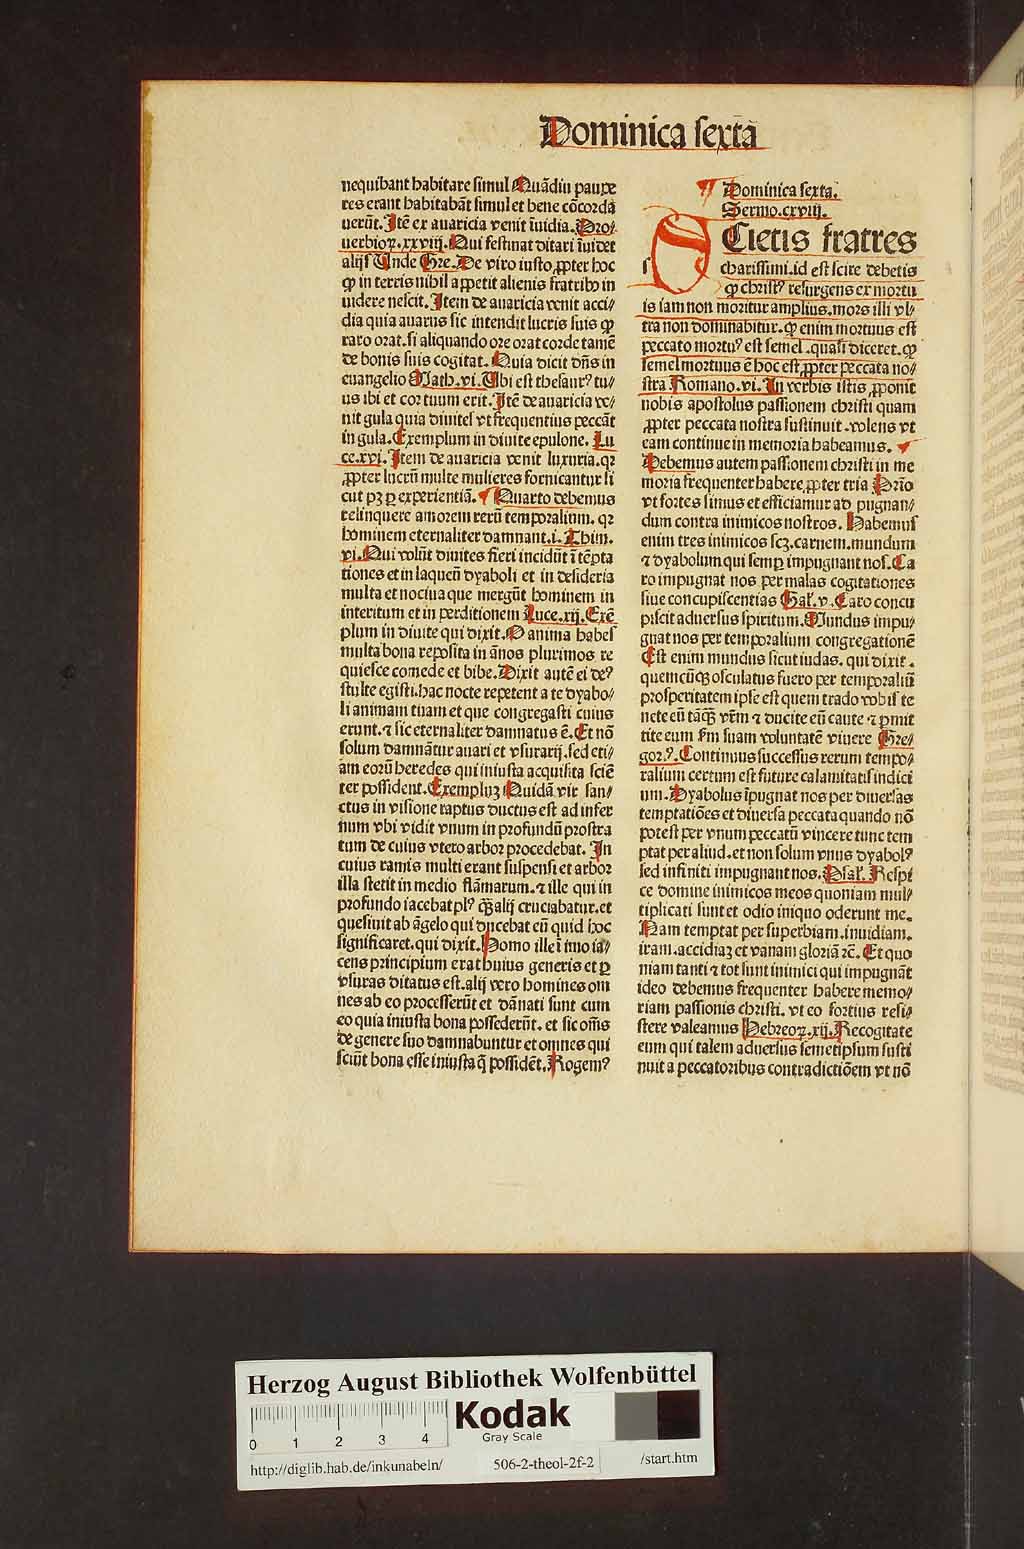 Dominica sexta
nequibant habitare simul Quādiu paupe
res erant habitabāt simul et bene cōcorda
uerūt. Itē ex auaricia venit īuidia. Pro/
uerbioꝝ. xxviij. Qui festinat ditari īuidet
alijs Unde Gre. De viro iusto ꝓpter hoc
ꝙ in terris nihil appetit alienis fratribꝰ in
uidere nescit. Item de auaricia venit acci/
dia quia auarus sic intendit lucris suis ꝙ
raro orat. si aliquando ore orat corde tamē
de bonis suis cogitat. Quia dicit dn̄s in
euangelio Math. vi. Ubi est thesaurꝰ tu/
us ibi et cor tuum erit. Itē de auaricia ve/
nit gula quia diuites vt frequentius peccāt
in gula. Exemplum in diuite epulone. Lu
ce. xvi. Item de auaricia venit luxuria. qꝛ
ꝓpter lucrū multe mulieres fornicantur si
cut pꝫ ꝑ experientiā. Quarto debemus
relinquere amorem rerū temporalium. qꝛ
hominem eternaliter damnant. i. Thim.
vi. Qui volūt diuites fieri incidūt ī tēpta
tiones et in laqueū dyaboli et in desideria
multa et nociua que mergūt hominem in
interitum et in perditionem Luce. xij. Exē
plum in diuite qui dixit. O anima habes
multa bona reposita in ānos plurimos re
quiesce comede et bibe. Dixit autē ei deꝰ
stulte egisti. hac nocte repetent a te dyabo/
li animam tuam et que congregasti cuius
erunt. ⁊ sic eternaliter damnatus ē. Et nō
solum damnātur auari et vsurarij. sed eti/
am eorū heredes qui iniusta acquisita sciē
ter possident. Exempluꝫ Quidā vir san/
ctus in visione raptus ductus est ad infer
num vbi vidit vnum in profundū prostra
tum de cuius vtero arbor procedebat. In
cuius ramis multi erant suspensi et arbor
illa stetit in medio flāmarum. ⁊ ille qui in
profundo iacebat plꝰ qꝫ alij cruciabatur. et
quesiuit ab āgelo qui ducebat eū quid hoc
significaret. qui dixit. Homo ille ī imo ia/
cens principium erat huius generis et ꝑ
vsuras ditatus est. alij vero homines om
nes ab eo processerūt et dānati sunt cum
eo quia iniusta bona possederūt. et sic om̄s
de genere suo damnabuntur et omnes qui
sciūt bona esse iniusta q̄ possidēt. Rogemꝰ
Dominica sexta.
Sermo. cxviij.
s
Cietis fratres
charissimi. id est scire debetis
ꝙ christꝰ resurgens ex mortu
is iam non moritur amplius. mors illi vl/
tra non dominabitur. ꝙ enim mortuus est
peccato mortuꝰ est semel. quasi diceret. ꝙ
semel mortuus ē hoc est ꝓpter peccata no/
stra Romano. vi. In verbis istis ꝓponit
nobis apostolus passionem christi quam
ꝓpter peccata nostra sustinuit. volens vt
eam continue in memoria habeamus.
Debemus autem passionem christi in me
moria frequenter habere ꝓpter tria Prīo
vt fortes simus et efficiamur ad pugnan/
dum contra inimicos nostros. Habemus
enim tres inimicos scꝫ. carnem. mundum
⁊ dyabolum qui semꝑ impugnant nos. Ca
ro impugnat nos per malas cogitationes
siue concupiscentias Gal. v. Caro concu
piscit aduersus spiritum. Mundus impu/
gnat nos per temporalium congregationē
Est enim mundus sicut iudas. qui dixit.
quemcūqꝫ osculatus fuero per temporaliū
prosperitatem ipse est quem trado vobis te
nete eū tāqꝫ vr̄m ⁊ ducite eū caute ⁊ ꝑmit
tite eum ẜm suam voluntatē viuere Gre/
gorꝰ. Continuus successus rerum tempo/
ralium certum est future calamitatis indici
um. Dyabolus īpugnat nos per diuersas
temptatiōes et diuersa peccata quando nō
potest per vnum peccatū vincere tunc tem
ptat per aliud. et non solum vnus dyabolꝰ
sed infiniti impugnant nos. Psal. Respi
ce domine inimicos meos quoniam mul/
tiplicati sunt et odio iniquo oderunt me.
Nam temptat per superbiam. inuidiam.
iram. accidiaꝫ et vanam gloriā ⁊c̄. Et quo
niam tanti ⁊ tot sunt inimici qui impugnāt
ideo debemus frequenter habere memo/
riam passionis christi. vt eo fortius resi/
stere valeamus Hebreoꝝ. xij. Recogitate
eum qui talem aduersus semetipsum susti
nuit a peccatoribus contradictiōem vt nō
Herzog August Bibliothek Wolfenbüttel
Kodak
Gray Scale
0 1 2 3 4
http://diglib.hab.de/inkunabeln/ 506-2-theol-2f-2 /start.htm